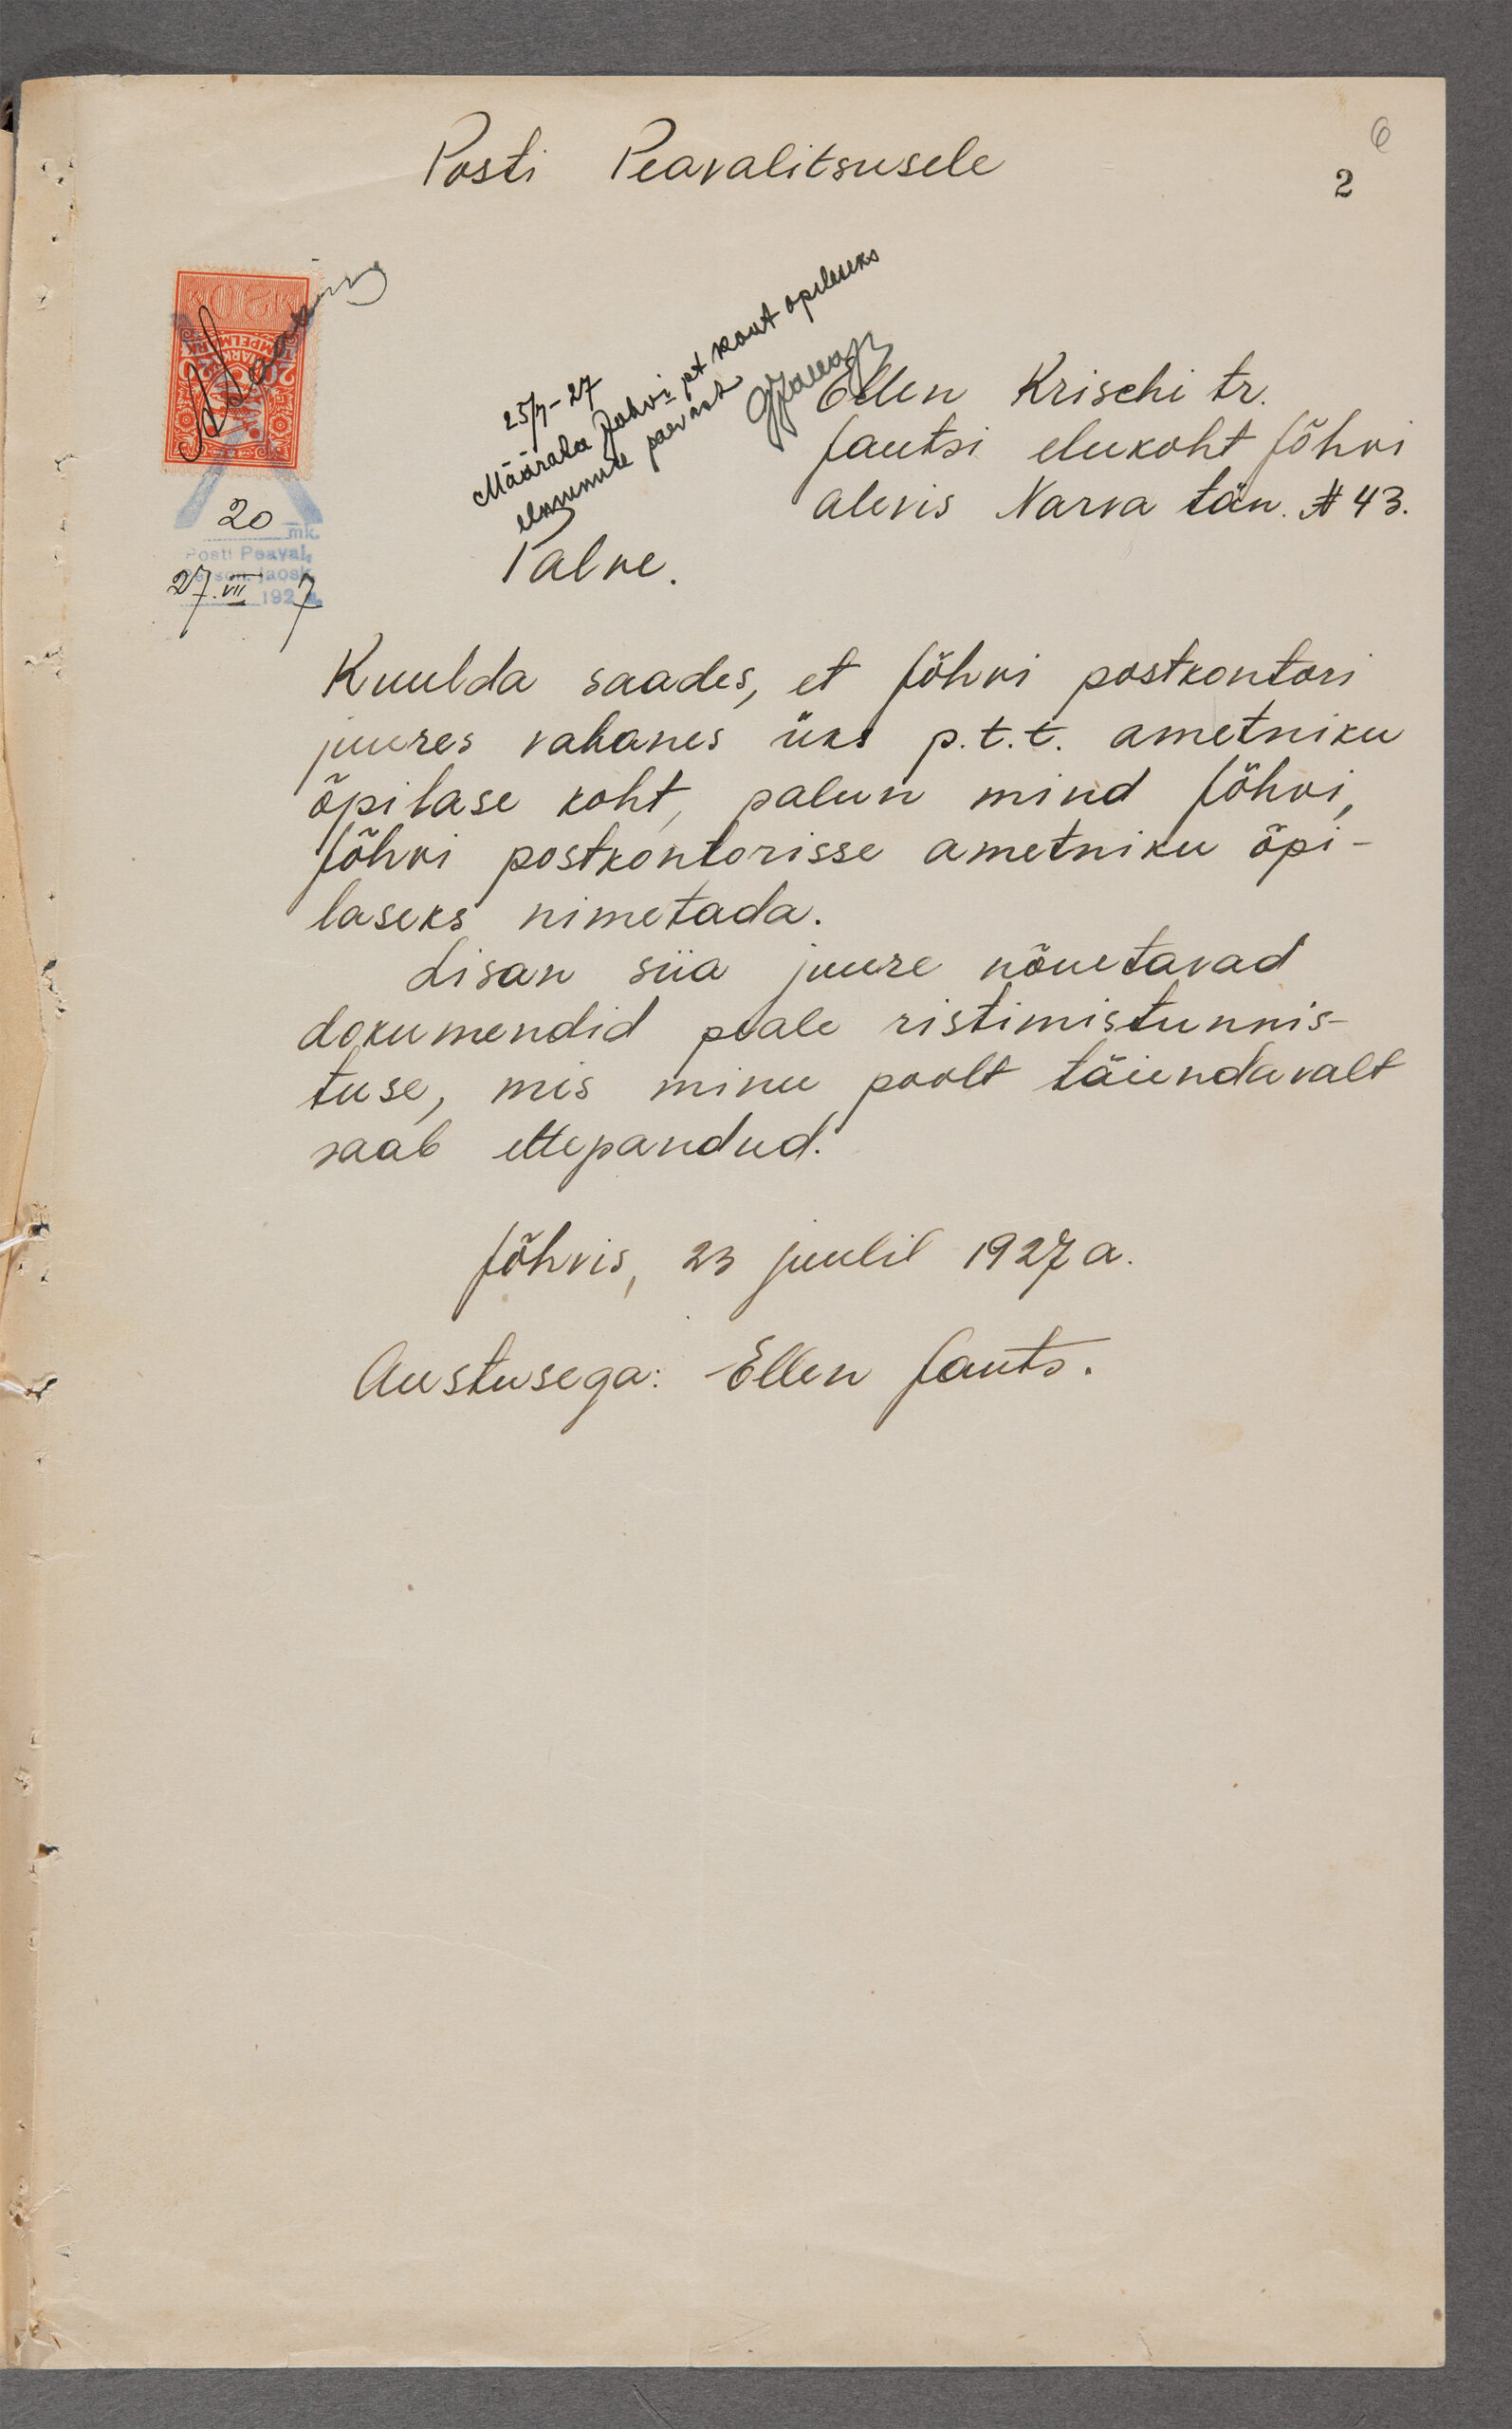 Posti Peavalitsusele
6
2
20 mk.
Posti Peaval.
Person. jaosk.
27. VII 1927
25/7-27
Määrata Johvi pt kont opileseks
ilmumise päevast
Ellen Krischi tr.
Jautsi elukoht Jõhvi
alevis Narva tän. # 43.
Palve.
Kuulda saades, et Jõhvi postkontori
juures vabanes üks p.t.t. ametniku
õpilase koht, palun mind Jõhvi,
Jõhvi postkontorisse ametniku õpi-
laseks nimetada.
Lisan siia juure nõuetavad
dokumendid peale ristimistunnis-
tuse, mis minu poolt täiendavalt
saab ettepandud.
Jõhvis, 23 juulil 1927 a.
Austusega: Ellen Jauts.